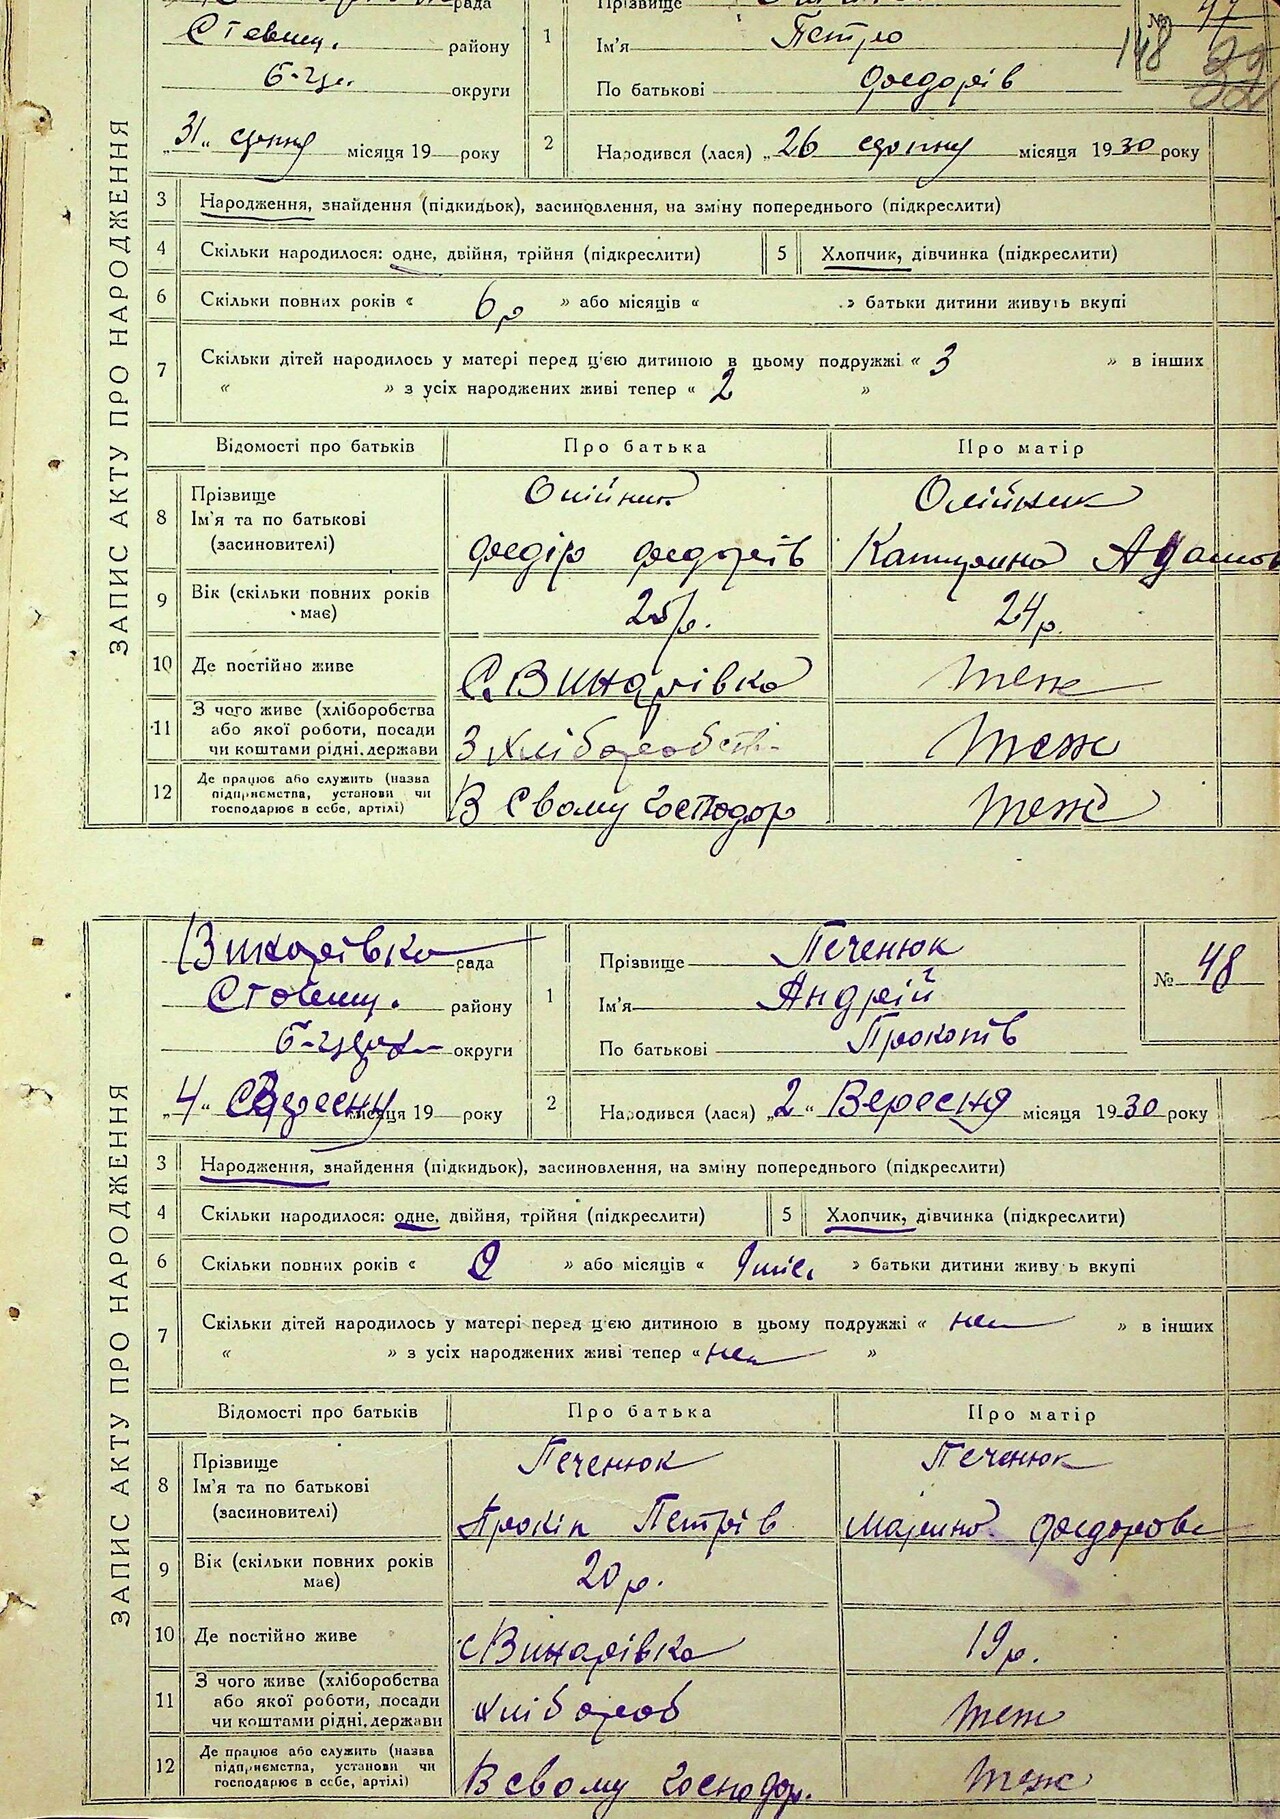 рада
Прізвище
№ 47
Стевищ. району
1
Ім'я Петро
148
32
Б-Це. округи
По батькові Федорів
„31" серпну місяця 19 року
2
Народився (лася) „26 серпну місяця 1930 року
ЗАПИС АКТУ ПРО НАРОДЖЕННЯ
3 Народження, знайдення (підкидьок), засиновлення, на зміну попереднього (підкреслити)
4 Скільки народилося: одне, двійня, трійня (підкреслити)
5 Хлопчик, дівчинка (підкреслити)
6 Скільки повних років « 6р » або місяців « » батьки дитини живуть вкупі
7 Скільки дітей народилось у матері перед ц'єю дитиною в цьому подружжі « 3 » в інших
« » з усіх народжених живі тепер « 2 »
Відомості про батьків Про батька Про матір
8 Прізвище Олійник Олійник
Ім'я та по батькові
(засиновителі) Федір Федорів Катерина Адамов
9 Вік (скільки повних років має) 25/р. 24р.
10 Де постійно живе С. Винарівка теж
11 З чого живе (хліборобства
або якої роботи, посади
чи коштами рідні, держави З хліборобсті- теж
12 Де працює або служить (назва
підприємства, установи чи
господарює в себе, артілі) В свому господар теж
Винарівка рада
Прізвище Печенюк
№ 48
Стевищ. району
1
Ім'я Андрій
округи
По батькові Прокопів
„4" Вересну місяця 19 року
2
Народився (лася) „2" Вересня місяця 1930 року
ЗАПИС АКТУ ПРО НАРОДЖЕННЯ
3 Народження, знайдення (підкидьок), засиновлення, на зміну попереднього (підкреслити)
4 Скільки народилося: одне, двійня, трійня (підкреслити)
5 Хлопчик, дівчинка (підкреслити)
6 Скільки повних років « » або місяців « 9 міс. » батьки дитини живуть вкупі
7 Скільки дітей народилось у матері перед ц'єю дитиною в цьому подружжі « нем » в інших
« » з усіх народжених живі тепер « нем »
Відомості про батьків Про батька Про матір
8 Прізвище Печенюк Печенюк
Ім'я та по батькові
(засиновителі) Прокіп Петрів Марина Федорове
9 Вік (скільки повних років має) 20р.
10 Де постійно живе с Винарівка 19р.
11 З чого живе (хліборобства
або якої роботи, посади
чи коштами рідні, держави хлібороб теж
12 Де працює або служить (назва
підприємства, установи чи
господарює в себе, артілі) В свому господар. теж